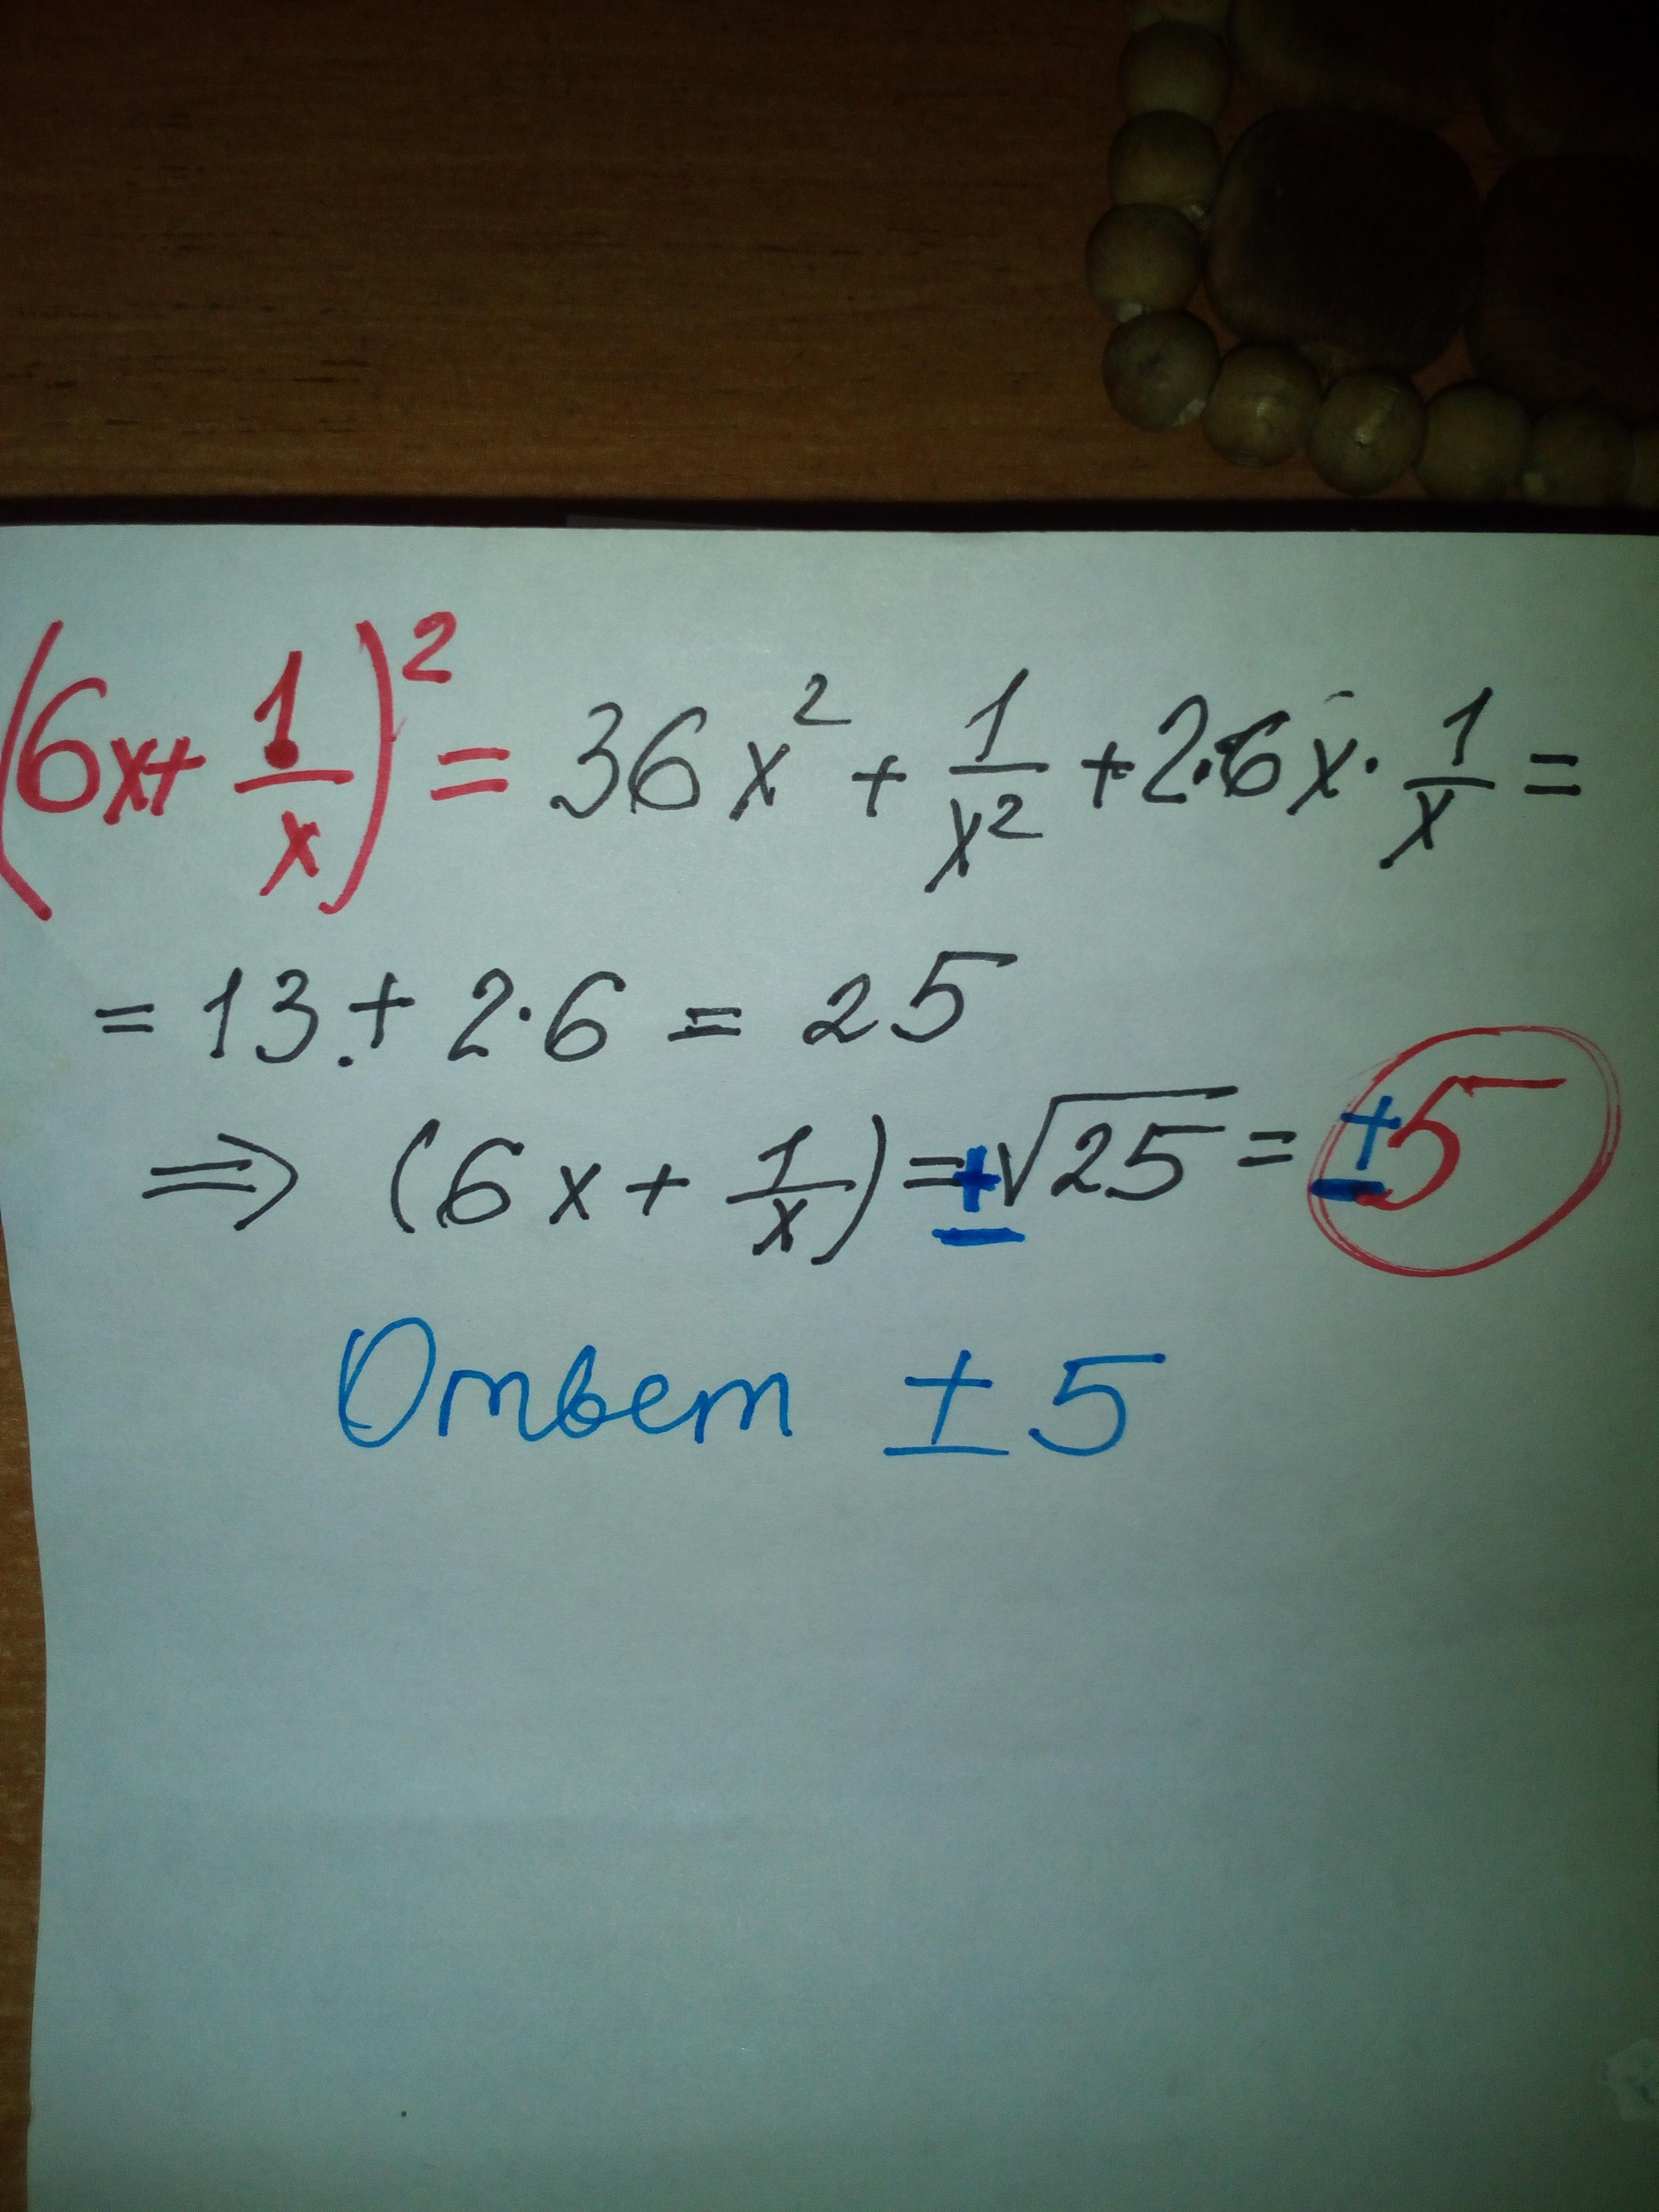 (6x+ 1/x)² = 36x² + 1/x² + 2·6x· 1/x =
= 13 + 2·6 = 25
⇒ (6x + 1/x) = ±√25 = ±5
Ответ ±5